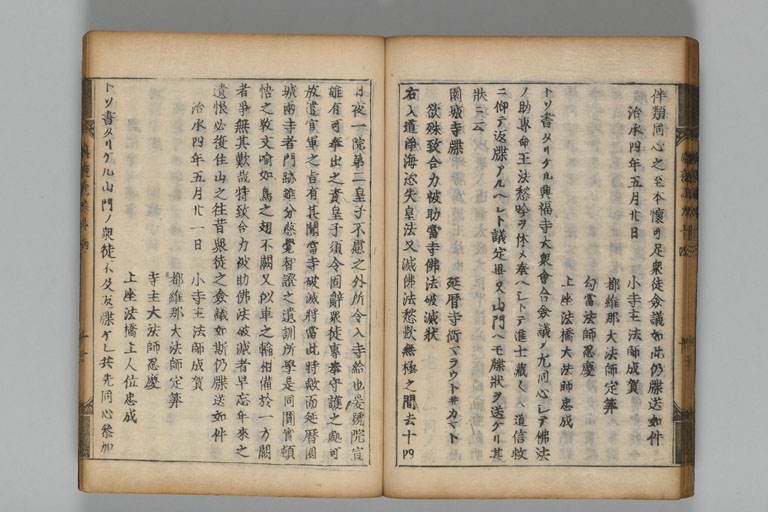 伴類同心之至本懷可足衆徒僉議如此仍牒送如件
治承四年五月廿日　小寺主法師成賀
都維那大法師定筭
勾當法師忍慶
上座法橋大法師忠成
トソ書タリケル興福寺大衆會合僉議ノ尤同心シテ佛法
ノ助專命王法愁吟ヲ休メ奉ヘシトテ進士藏人入道信救
ニ仰テ返牒アルヘシト議定畢又山門ヘモ牒狀ヲ送ケリ其
狀ニ云
園城寺牒　延暦寺衙
欲殊致合力被助當寺佛法破滅狀
右入道淨海恣失皇法又滅佛法愁歎無極之間去十四
日夜一院第二皇子不慮之外所令入寺給也爰號院宣
雖有可奉出之責皇子須令固辭衆徒專奉守護之處可
放遣官軍之旨有其聞當寺破滅將當此時歟而延暦園
城兩寺者門跡雖分慈覺智證之遺訓所學是同圓實頓
悟之敎文喩如鳥之翅不闕又似車之輪相備於一方闕
者爭無其歎哉特致合力被助佛法破滅者早忘年來之
遺恨必復住山之往昔衆徒之僉議如斯仍牒送如件
治承四年五月廿一日　小寺主法師成賀
都維那大法師定筭
寺主大法師忍慶
上座法橋上人位忠成
トソ書タリケル山門ノ衆徒不及返牒ケレ共先同心參加